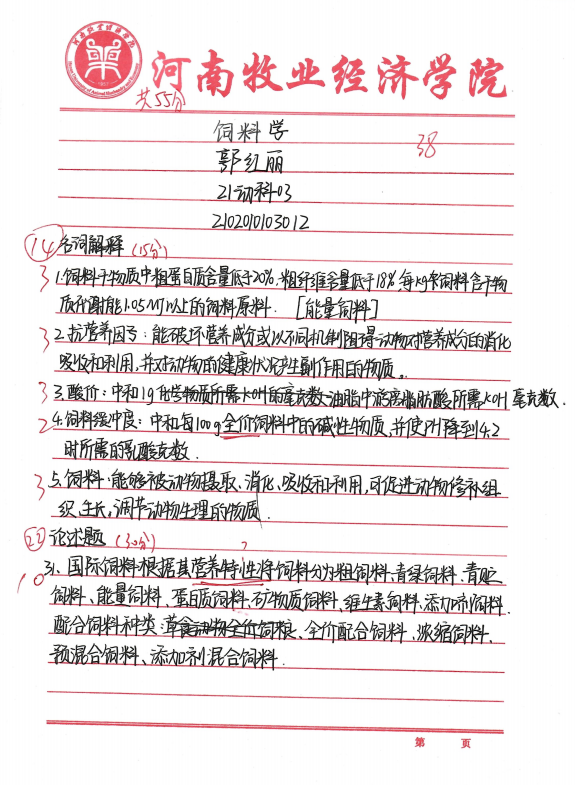 河南牧业经济学院
共55分
饲料学
38
郭红丽
21动科03
2102010103012
14 名词解释 (15分)
3 1.饲料干物质中粗蛋白质含量低于20%,粗纤维含量低于18%,每kg饲料含干物
质消化能1.05MJ以上的饲料原料. [能量饲料]
3 2.抗营养因子:能破坏营养成分或以不同机制阻碍动物对营养成分的消化
吸收和利用,并对动物的健康状况产生副作用的物质。
3 3.酸价:中和1g化学物质所需KOH的毫克数 油脂中游离脂肪酸所需KOH毫克数.
2 4.饲料缓冲度:中和每100g全价饲料中的碱性物质,并使PH降到4.2
时所需的乳酸克数.
3 5.饲料:能够被动物摄取、消化、吸收和利用,可促进动物修补组
织、生长,调节动物生理的物质.
论述题 (30分) ?
10 31、国际饲料根据其营养特性将饲料分为粗饲料、青绿饲料、青贮
饲料、能量饲料、蛋白质饲料、矿物质饲料、维生素饲料、添加剂饲料.
配合饲料种类:全价配合饲料、浓缩饲料、
预混合饲料、添加剂混合饲料.
第 页